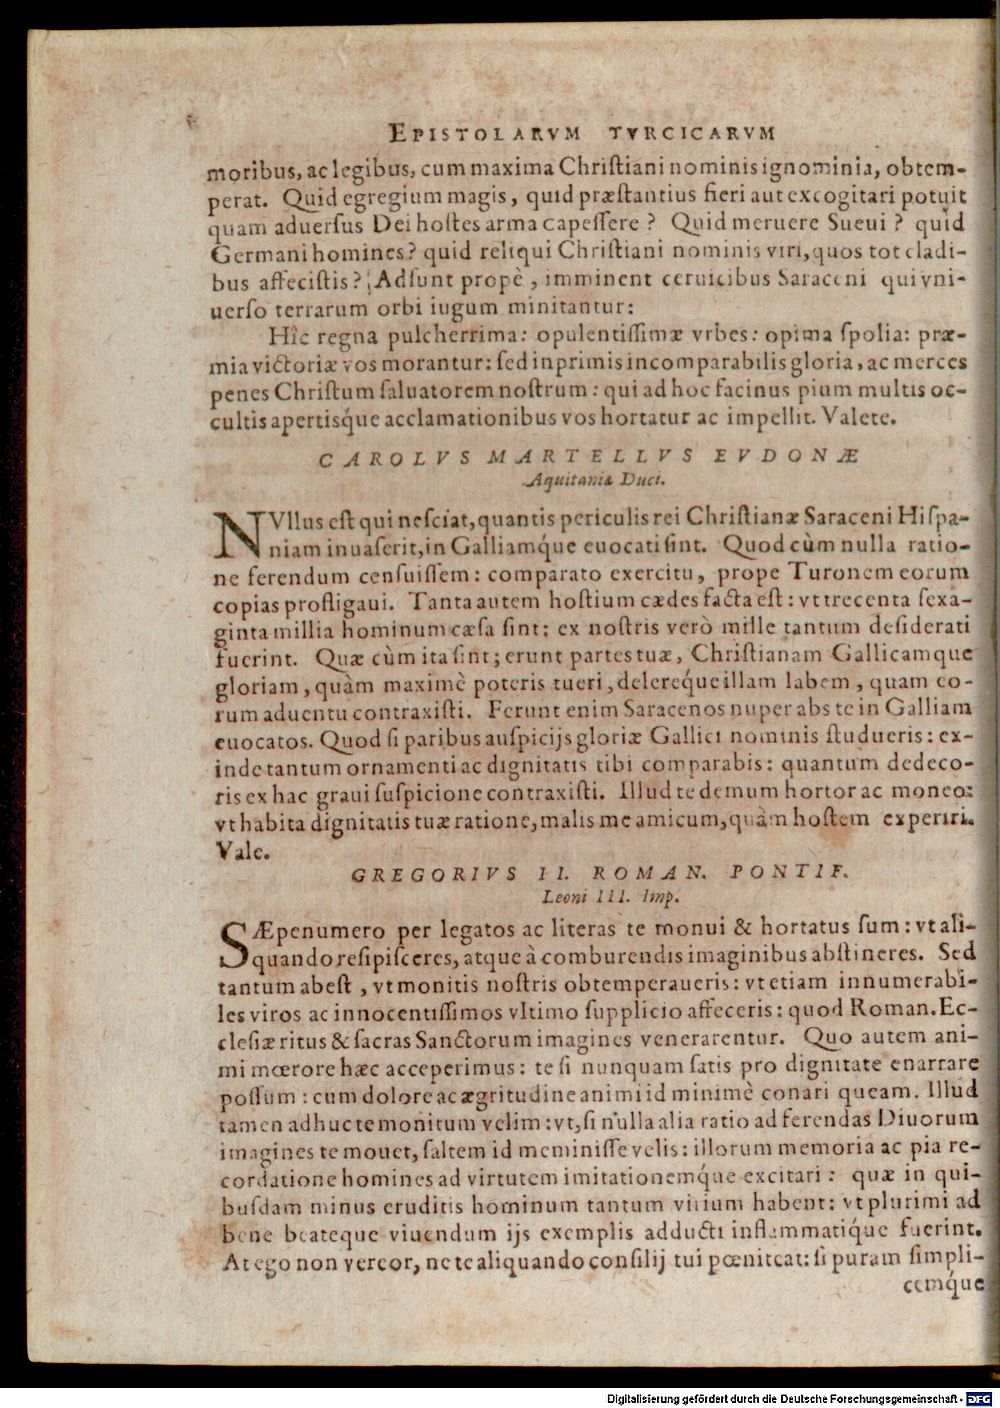 EPISTOLARVM TVRCICARVM
moribus, ac legibus, cum maxima Chriſtiani nominis ignominia, obtem-
perat. Quid egregium magis, quid præſtantius fieri aut excogitari potuit
quam aduerſus Dei hoſtes arma capeſſere? Quid meruere Sueui? quid
Germani homines? quid reliqui Chriſtiani nominis viri, quos tot cladi-
bus affeciſtis? Adſunt propè, imminent ceruicibus Saraceni qui vni-
uerſo terrarum orbi iugum minitantur:
Hîc regna pulcherrima: opulentiſſimæ vrbes: opima ſpolia: præ-
mia victoriæ vos morantur: ſed inprimis incomparabilis gloria, ac merces
penes Chriſtum ſaluatorem noſtrum: qui ad hoc facinus pium multis oc-
cultis apertisq́ue acclamationibus vos hortatur ac impellit. Valete.
CAROLVS MARTELLVS EVDONÆ
Aquitaniæ Duci.
NVllus eſt qui neſciat, quantis periculis rei Chriſtianæ Saraceni Hiſpa-
niam inuaſerit, in Galliamq́ue euocati ſint. Quod cùm nulla ratio-
ne ferendum cenſuiſſem: comparato exercitu, prope Turonem eorum
copias profligaui. Tanta autem hoſtium cædes facta eſt: vt trecenta ſexa-
ginta millia hominum cæſa ſint: ex noſtris verò mille tantum deſiderati
fuerint. Quæ cùm ita ſint; erunt partes tuæ, Chriſtianam Gallicamque
gloriam, quàm maximè poteris tueri, delereq́ue illam labem, quam eo-
rum aduentu contraxiſti. Ferunt enim Saracenos nuper abs te in Galliam
euocatos. Quod ſi paribus auſpicijs gloriæ Gallici nominis ſtudueris: ex-
inde tantum ornamenti ac dignitatis tibi comparabis: quantum dedeco-
ris ex hac graui ſuſpicione contraxiſti. Illud te demum hortor ac moneo:
vt habita dignitatis tuæ ratione, malis me amicum, quàm hoſtem experiri.
Vale.
GREGORIVS II. ROMAN. PONTIF.
Leoni III. Imp.
SÆpenumero per legatos ac literas te monui & hortatus ſum: vt ali-
quando reſipiſceres, atque à comburendis imaginibus abſtineres. Sed
tantum abeſt, vt monitis noſtris obtemperaueris: vt etiam innumerabi-
les viros ac innocentiſſimos vltimo ſupplicio affeceris: quod Roman. Ec-
cleſiæ ritus & ſacras Sanctorum imagines venerarentur. Quo autem ani-
mi mœrore hæc acceperimus: te ſi nunquam ſatis pro dignitate enarrare
poſſum: cum dolore ac ægritudine animi id minimè conari queam. Illud
tamen adhuc te monitum velim: vt, ſi nulla alia ratio ad ferendas Diuorum
imagines te mouet, ſaltem id meminiſſe velis: illorum memoria ac pia re-
cordatione homines ad virtutem imitationemq́ue excitari: quæ in qui-
buſdam minus eruditis hominum tantum vitium habent: vt plurimi ad
bene beateque viuendum ijs exemplis adducti inflammatiq́ue fuerint.
At ego non vereor, ne te aliquando conſilij tui pœniteat: ſi puram ſimpli-
cemq́ue
Digitalisierung gefördert durch die Deutsche Forschungsgemeinschaft - DFG